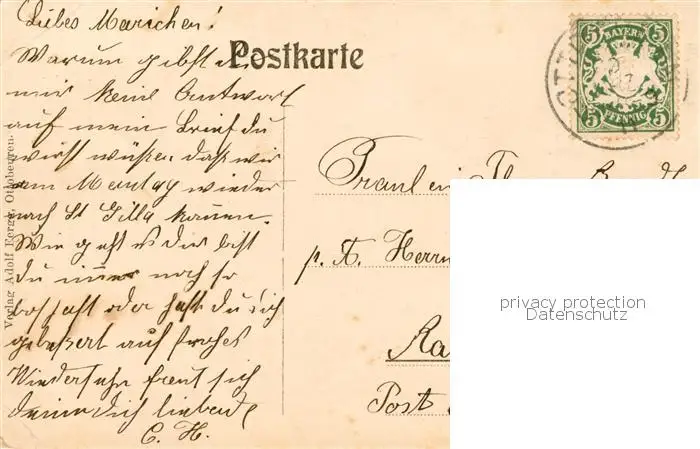 Liebes Mariechen!
Postkarte
Warum gibst du
mir keine Antwort
auf mein Brief du
wirst wüßen daß wir
am Montag wieder
nach St Gilla kommen.
Wie geht es dir bist
du immer noch so
boshaft oder hast du dich
gebeßert auf frohes
Wiedersehn freut sich
deine dich liebende
C. H.
Verlag Adolf Eerger, Ottobeuren.
5 BAYERN 5
5 PFENNIG 5
Fraulein
p. A. Herrn
Post
privacy protection
Datenschutz